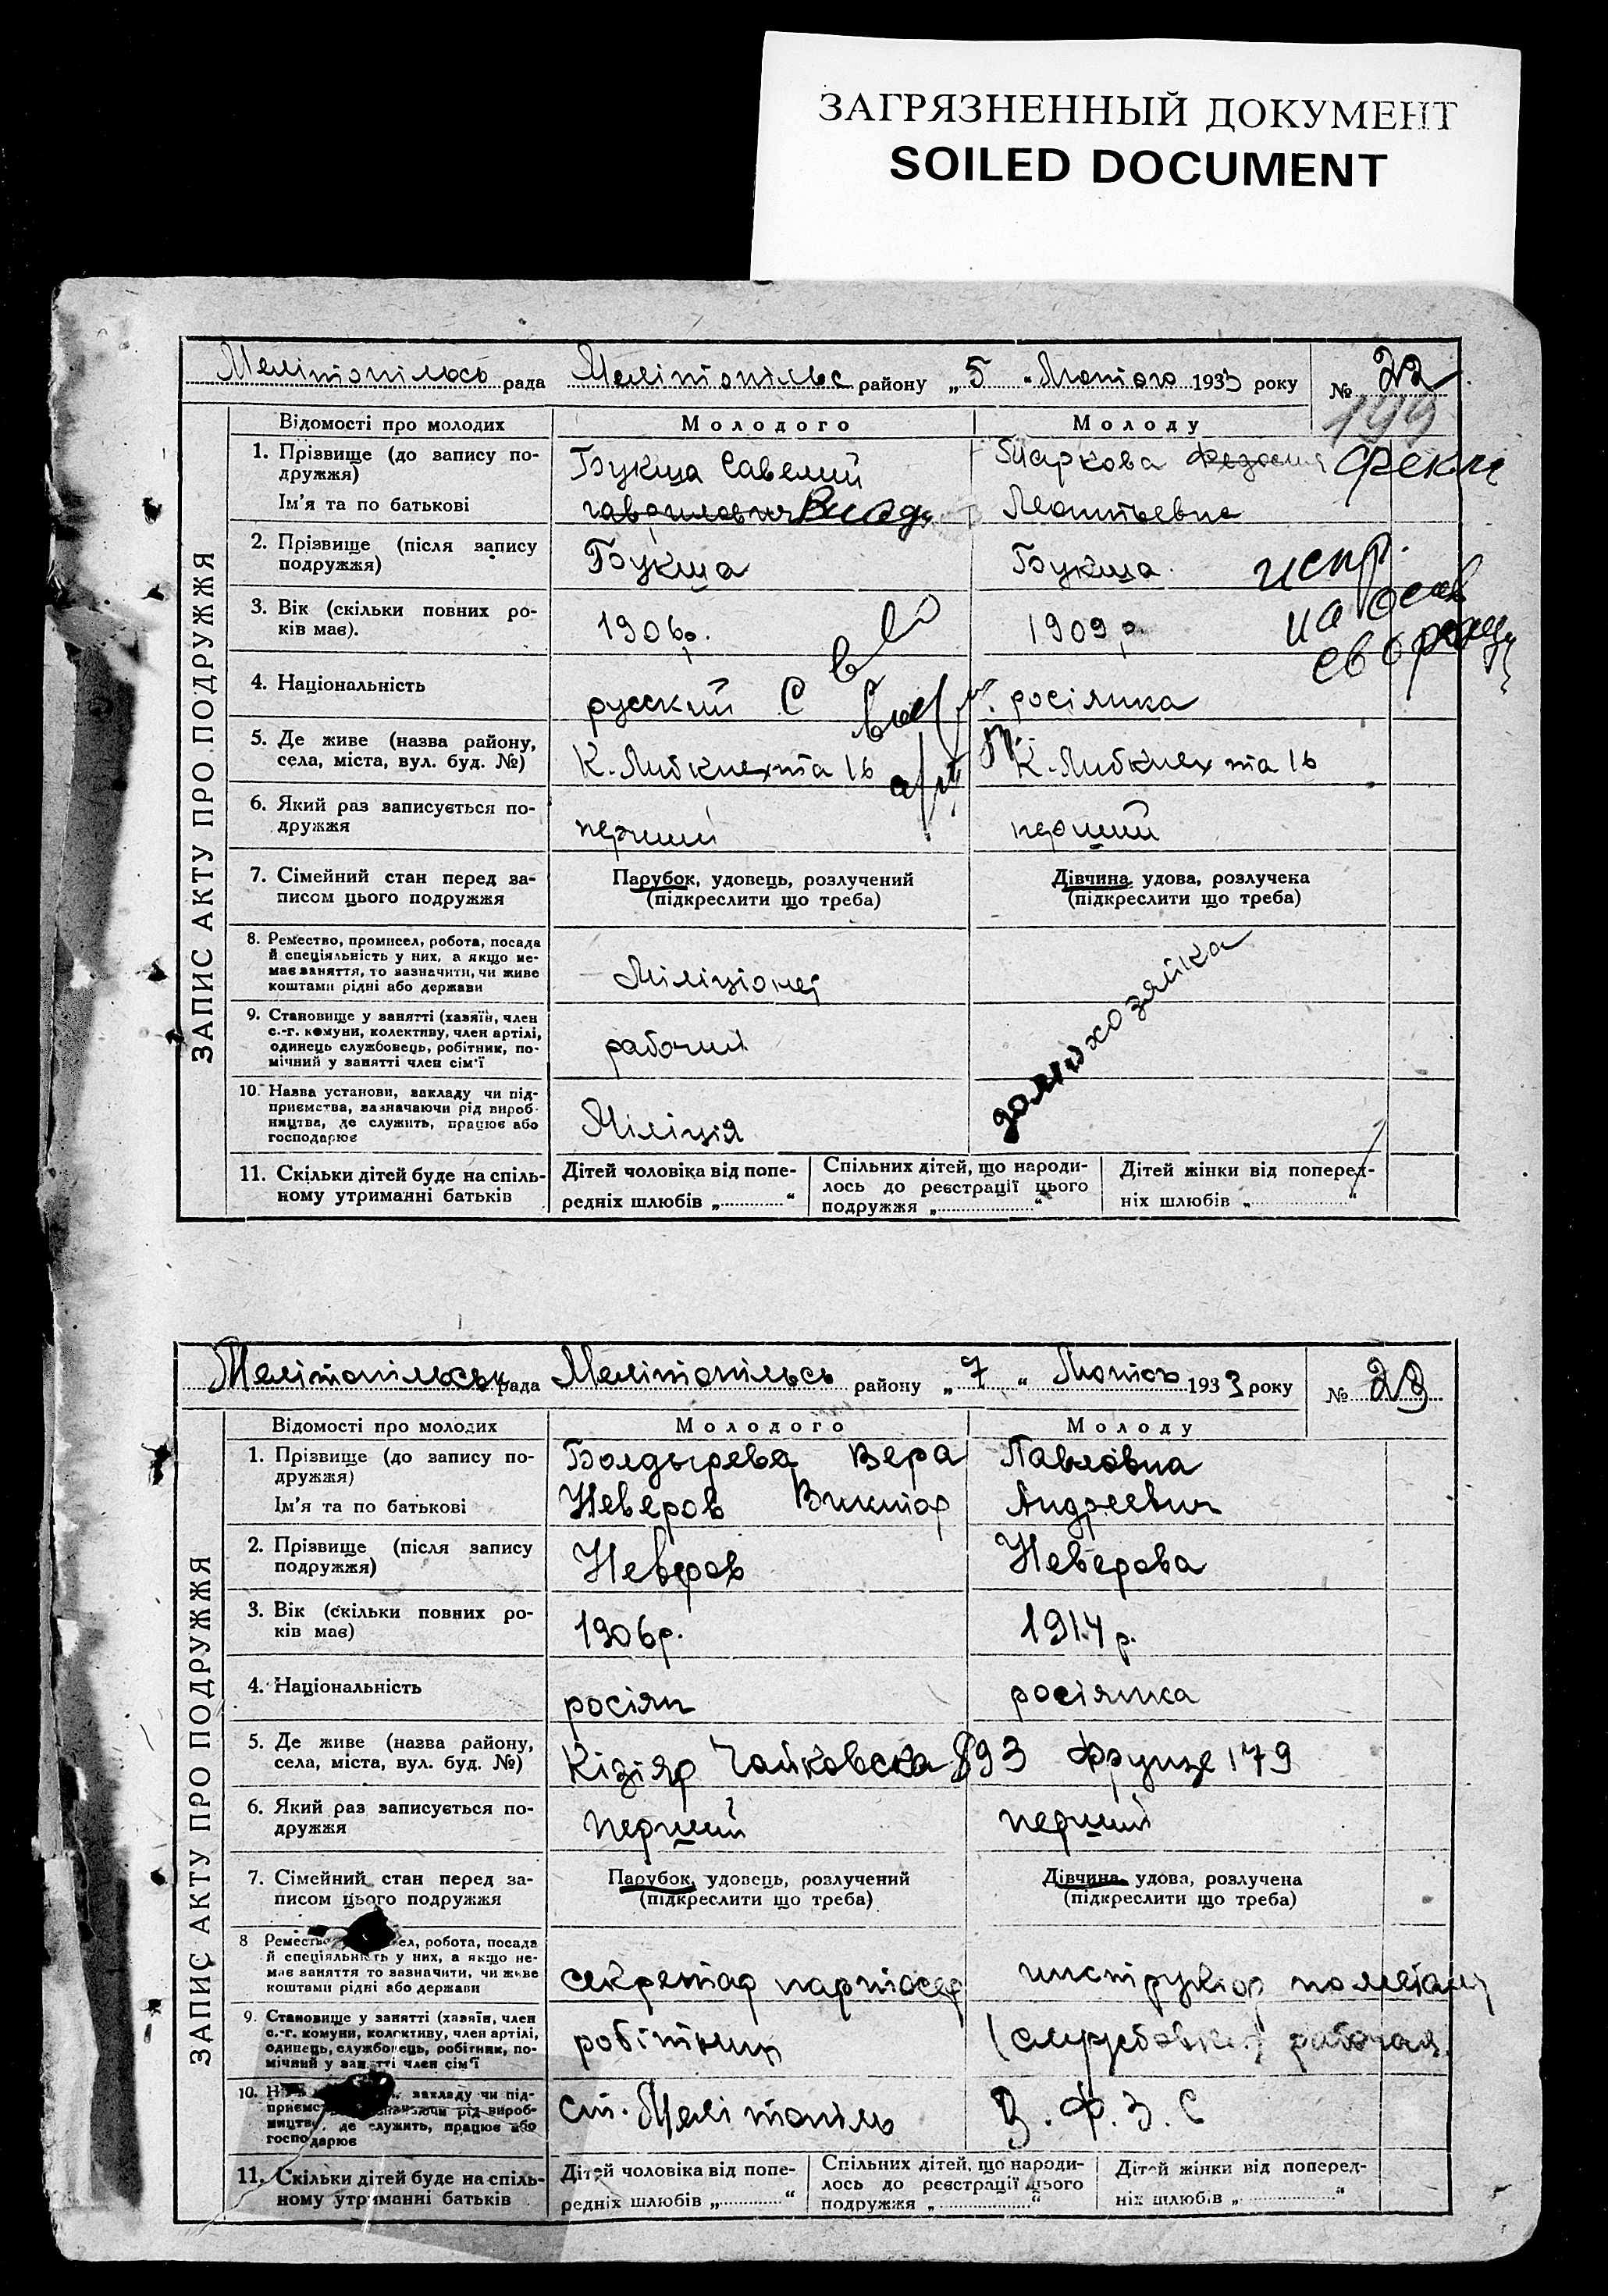 ЗАГРЯЗНЕННЫЙ ДОКУМЕНТ
SOILED DOCUMENT
Мелітопільсь рада Мелітопільс району „5“ Лютого 1933 року № 22
199
ЗАПИС АКТУ ПРО ПОДРУЖЖЯ
Відомості про молодих Молодого Молоду
1. Прізвище (до запису по-
дружжя)
Букша Савелий
Маркова Фекли
Ім'я та по батькові
Леонтьевна
2. Прізвище (після запису
подружжя)
Букша
Букша
испр.
на осн
3. Вік (скільки повних ро-
ків має).
1906р.
1909р
4. Національність
русский
росіянка
5. Де живе (назва району,
села, міста, вул. буд. №)
К. Либкнехта 16
К. Либкнехта 16
6. Який раз записується по-
дружжя
перший
перший
7. Сімейний стан перед за-
писом цього подружжя
Парубок, удовець, розлучений
(підкреслити що треба)
Дівчина, удова, розлучена
(підкреслити що треба)
8. Ремество, промисел, робота, посада
й спеціяльність у них, а якщо не-
має заняття, то зазначити, чи живе
коштами рідні або держави
Міліціонер
домохозяйка
9. Становище у занятті (хазяїн, член
с.-г. комуни, колективу, член артілі,
одинець службовець, робітник, по-
мічний у занятті член сім'ї
рабочий
10. Назва установи, закладу чи під-
приємства, зазначаючи рід вироб-
ництва, де служить, працює або
господарює
Міліція
11. Скільки дітей буде на спіль-
ному утриманні батьків
Дітей чоловіка від попе-
редніх шлюбів „ “
Спільних дітей, що народи-
лось до реєстрації цього
подружжя „ “
Дітей жінки від поперед-
ніх шлюбів „ “
Мелітопільськ рада Мелітопільсь району „7“ Лютого 1933 року № 23
ЗАПИС АКТУ ПРО ПОДРУЖЖЯ
Відомості про молодих Молодого Молоду
1. Прізвище (до запису по-
дружжя)
Болдырева Вера Павловна
Ім'я та по батькові
Неверов Виктор Андреевич
2. Прізвище (після запису
подружжя)
Неверов
Неверова
3. Вік (скільки повних ро-
ків має)
1906р.
1914 р.
4. Національність
росіян
росіянка
5. Де живе (назва району,
села, міста, вул. буд. №)
Кізіяр Чайковска 893 Фрунзе 179
6. Який раз записується по-
дружжя
перший
перший
7. Сімейний стан перед за-
писом цього подружжя
Парубок, удовець, розлучений
(підкреслити що треба)
Дівчина, удова, розлучена
(підкреслити що треба)
8 Ремество ел, робота, посада
й спеціяльність у них, а якщо не-
має заняття то зазначити, чи живе
коштами рідні або держави
секретар партосер
инструктор по
9. Становище у занятті (хазяїн, член
с.-г. комуни, колективу, член артілі,
одинець, службовець, робітник, по-
мічний у занятті член сім'ї
робітник
рабочая
10. закладу чи під-
рід вироб-
ництва, де служить, працює або
господарює
ст. Мелітопіль
В. Ф. З. С
11. Скільки дітей буде на спіль-
ному утриманні батьків
Дітей чоловіка від попе-
редніх шлюбів „ “
Спільних дітей, що народи-
лось до реєстрації цього
подружжя „ “
Дітей жінки від поперед-
ніх шлюбів „ “